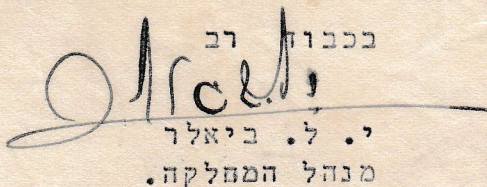 בכבוד רב
י. ל. ביאלר
מנהל המחלקה.